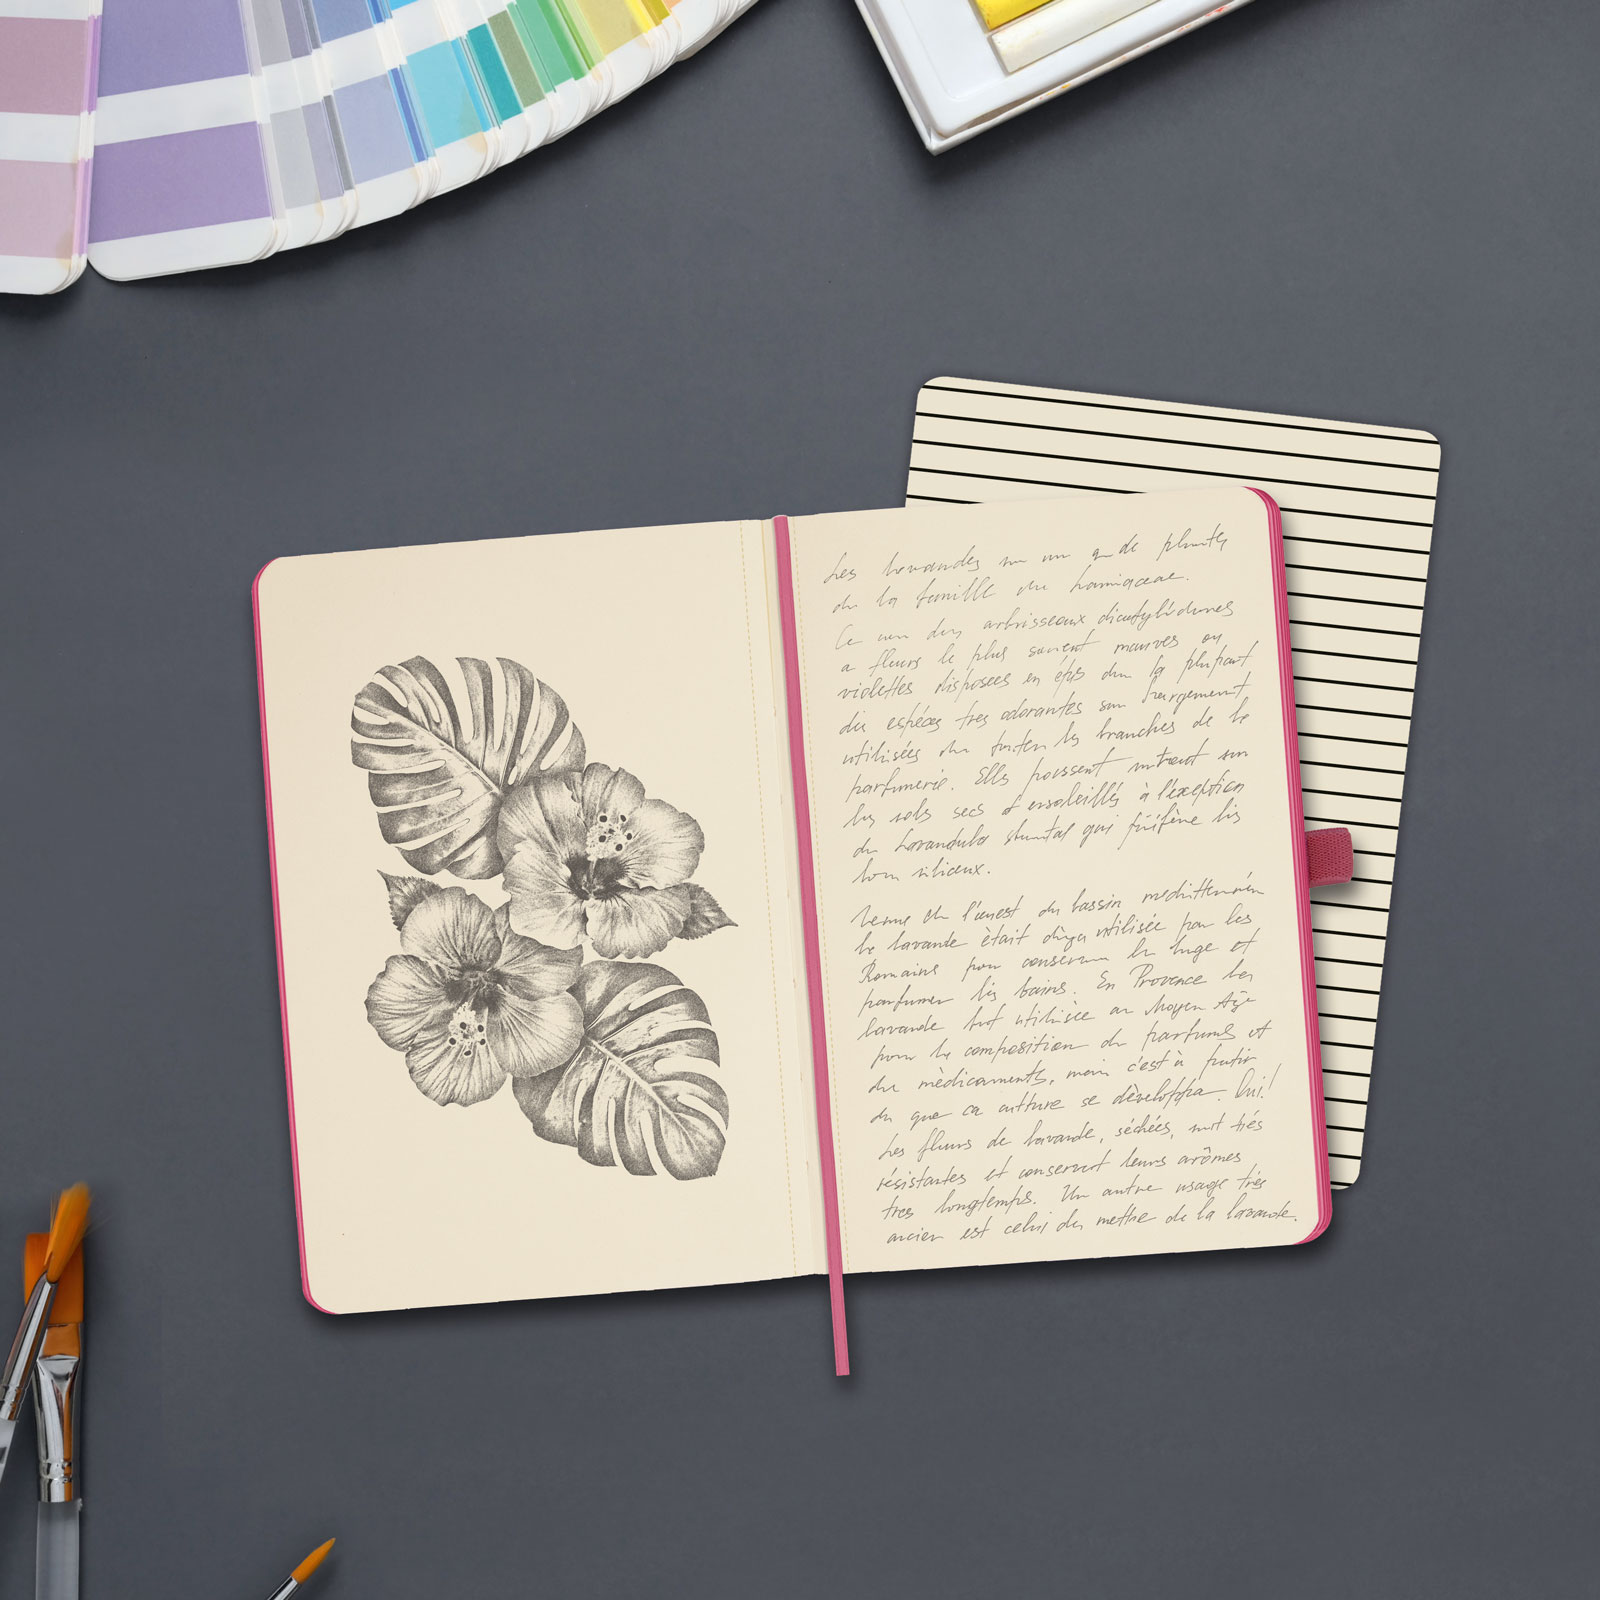 Les lavandes un de plantes
de la famille Lamiaceae.
Ce arbrisseaux dicotylédones
a fleurs le plus souvent mauves ou
violettes disposées en épis la plupart
des espèces tres odorantes sont largement
utilisées branches de la
parfumerie. Elles poussent surtout sur
les sols secs et ensoleillés à l'exeption
du Lavandula qui préfère les
siliceux.
l'ouest du bassin mediterranéen
la lavande ètait dèja utilisée par les
Romains pour conserver le linge et
parfumer les bains. En Provence la
lavande fut utilisèe au Moyen Age
pour la composition de parfums et
de mèdicaments, mais c'est à partir
du que sa culture se dèveloppa. Oui!
Les fleurs de lavande, séchées, sont très
résistantes et conservent leurs arômes
tres longtemps. Un autre usage très
ancien est celui de mettre de la lavande.